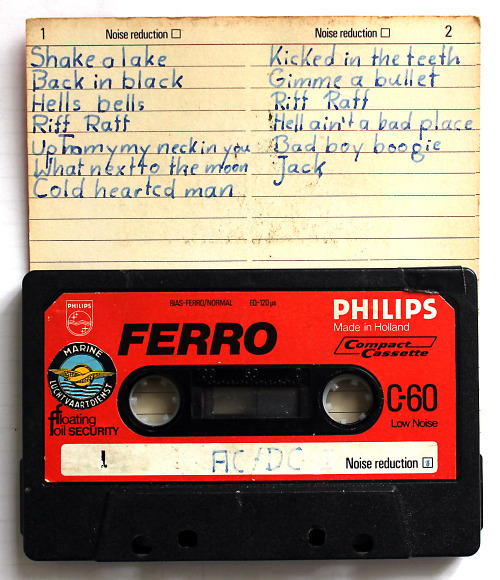 1 Noise reduction
Noise reduction 2
Shake a lake
Back in black
Hells bells
Riff Raff
Up Tomy my neck in you
What next to the moon
Cold hearted man
Kicked in the teeth
Gimme a bullet
Riff Raff
Hell ain't a bad place
Bad boy boogie
Jack
PHILIPS
BIAS-FERRO/NORMAL EQ-120µs
PHILIPS
Made in Holland
FERRO
Compact
Cassette
MARINE
LUCHTVAARTDIENST
C-60
Low Noise
floating
foil SECURITY
1 AC/DC Noise reduction